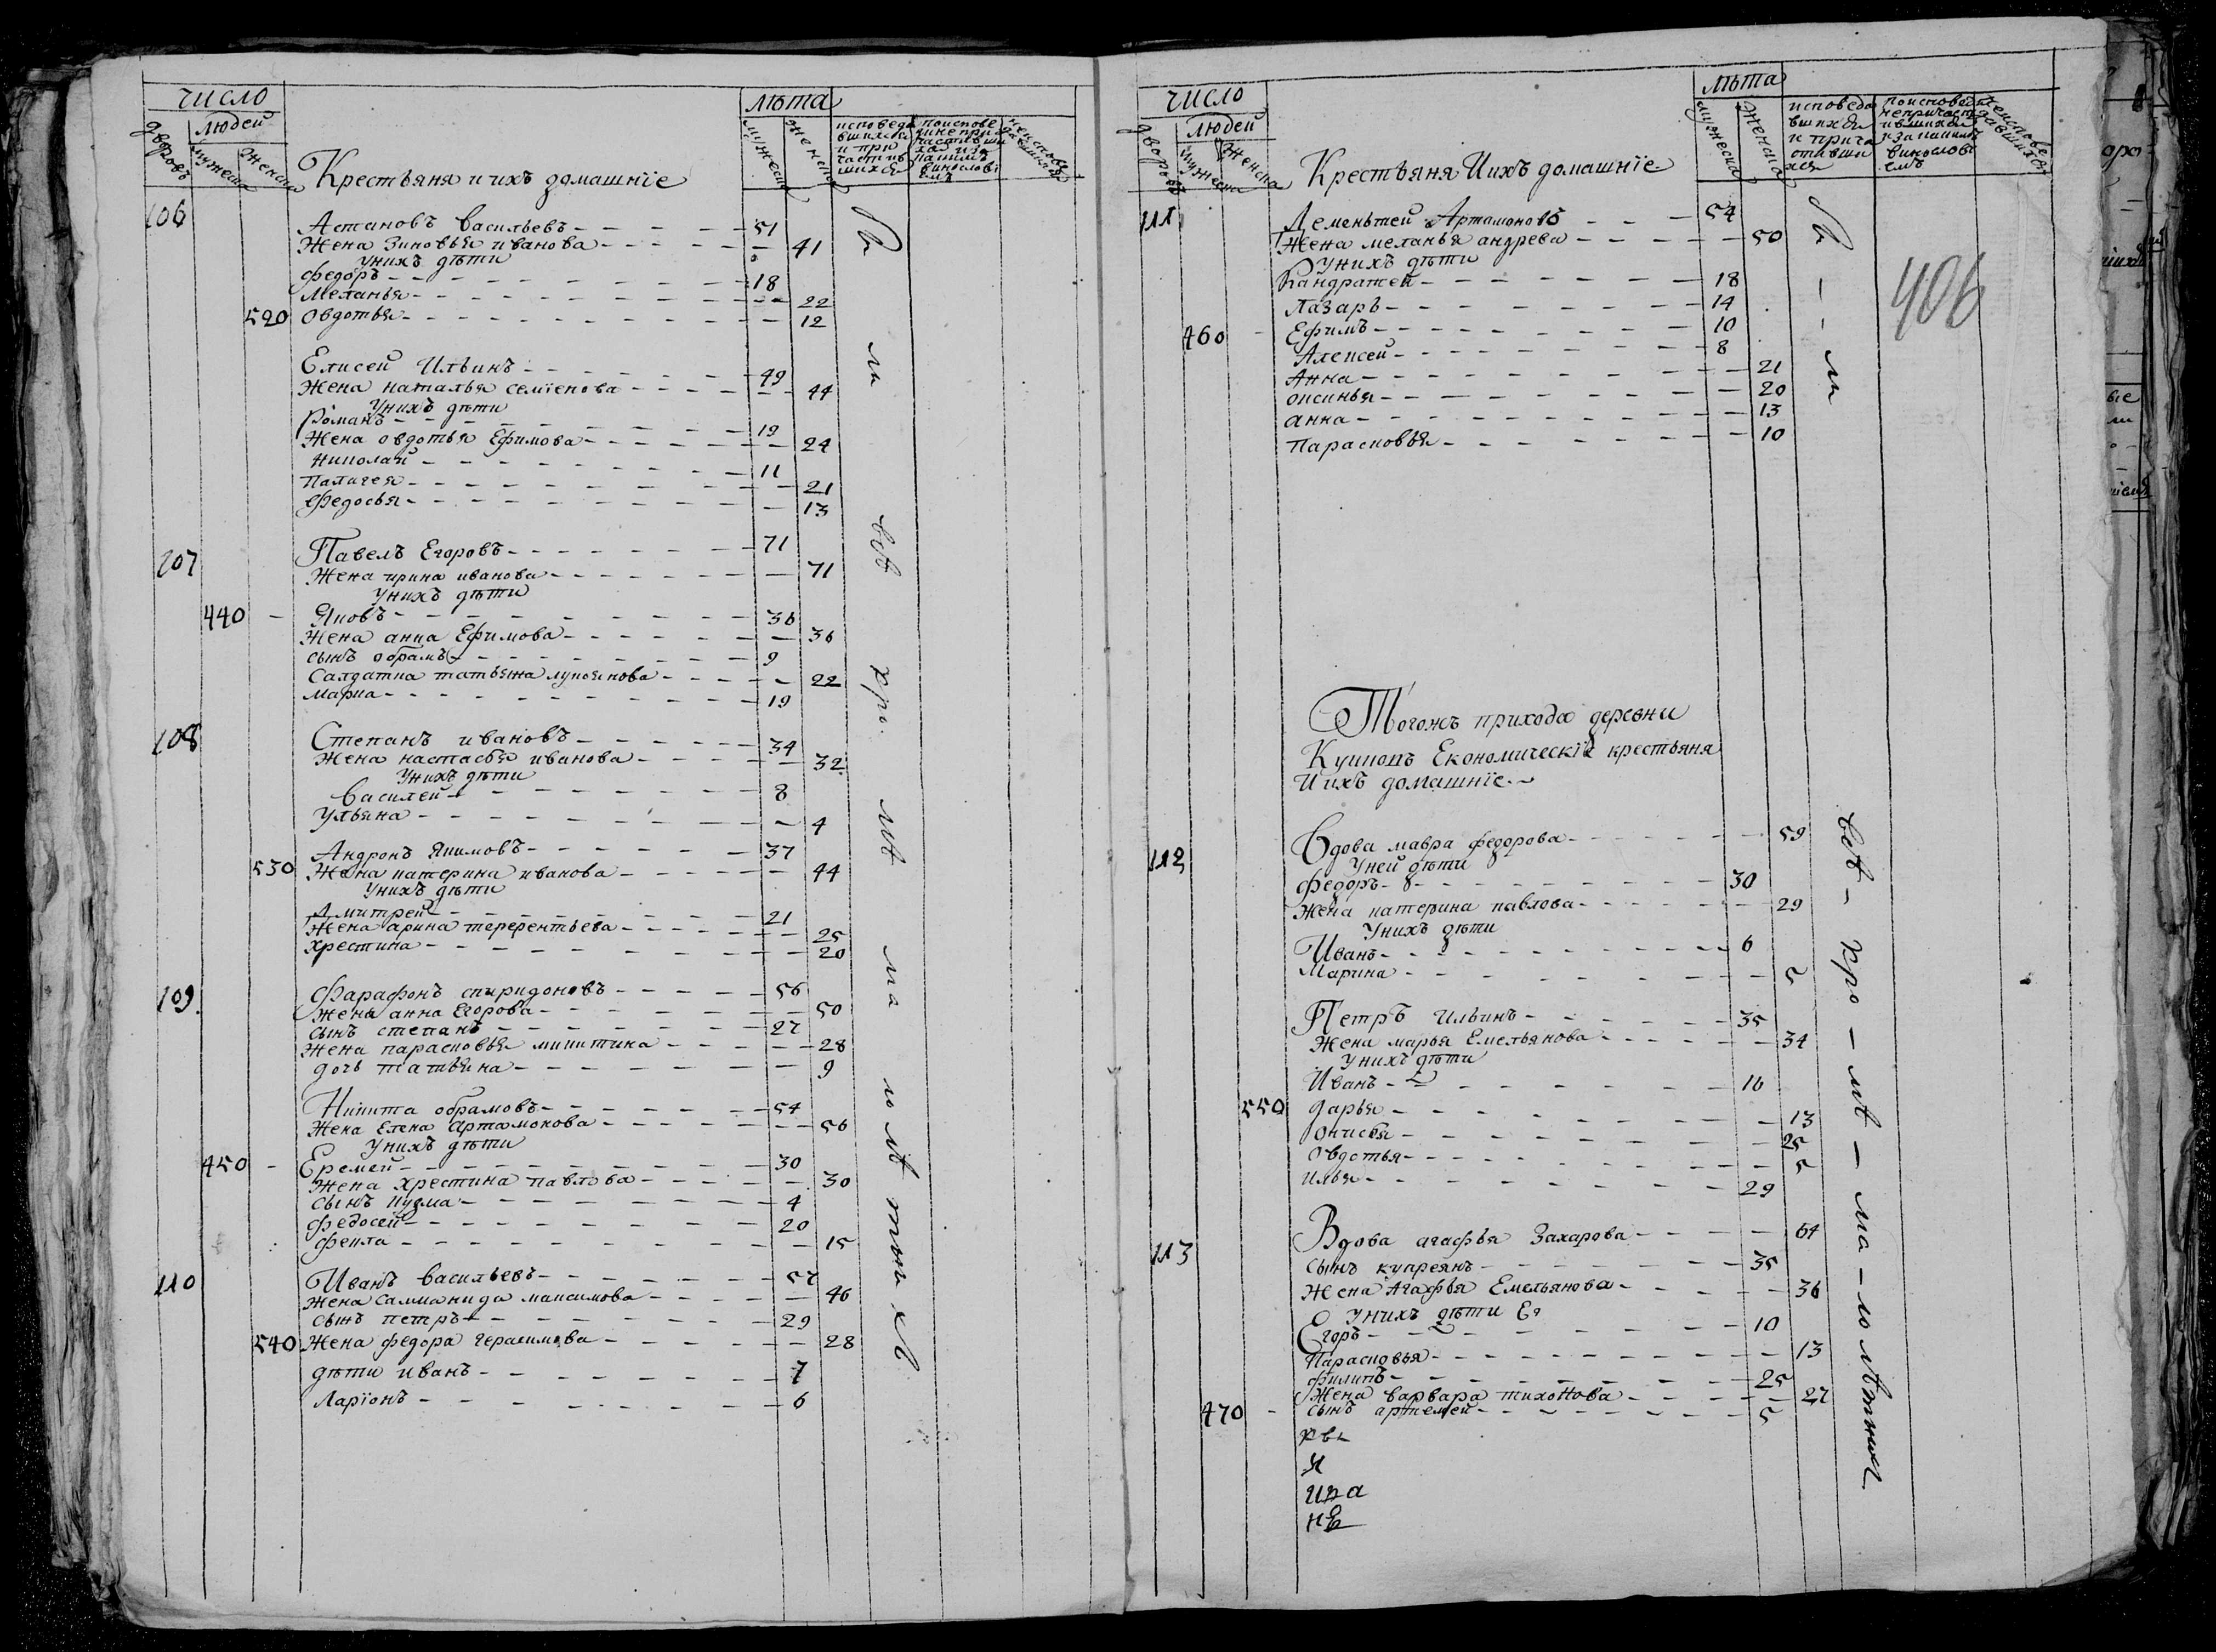 число
людей
дворовъ
мужеска
женска
Крестьяня и ихъ домашнїе
лѣта
мужеска
женска
исповеда
вшихся
и при
частив
шихся
106
Астаповъ Васильевъ 51
Жена Зиновья иванова 41
У нихъ дѣти
федоръ 18
Меланья 22
520 Овдотья 12
Елисей Ильинъ 49
Жена наталья семїенова 44
У нихъ дѣти
Романъ 19
Жена овдотья Ефимова 24
николай 11
Палагея 21
Федосья 13
107 Павелъ Егоровъ 71
Жена ирина иванова 71
У нихъ дѣти
440 Яковъ 36
Жена анна Ефимова 36
сынъ обрамъ 9
Салдатка татьяна лукоянова 22
Марка 19
108 Степанъ ивановъ 34
Жена настасья иванова 32
У нихъ дѣти
Василей 8
Ульяна 4
Андронъ Якимовъ 37
530 Жена катерина иванова 44
У нихъ дѣти
Дмитрей 21
Жена арина терерентьева 25
хрестина 20
109 Фарафонъ спиридоновъ 56
Жена анна Егорова 50
сынъ степанъ 27
Жена парасковья микитина 28
дочь татьяна 9
Никита обрамовъ 54
Жена Елена Артамонова 56
У нихъ дѣти
450 Еремей 30
Жена хрестина павлова 30
сынъ кузма 4
федосей 20
фекла 15
110 Иванъ Васильевъ 57
Жена Саламанида максимова 46
сынъ петръ 29
540 Жена федора герасимова 28
дѣти иванъ 7
Ларїонъ 6
число
людей
дворовъ
мужеска
женска
Крестьяня И ихъ домашнїе
лѣта
мужеска
женска
исповеда
вшихся
и прича
стивши
хся
406
111 Деменьтей Артамоновъ 54
Жена меланья андрева 50
У нихъ дѣти
Кандратей 18
Лазарь 14
460 Ефимъ 10
Алексей 8
Анна 21
оксинья 20
анна 13
парасковья 10
Тогожъ прихода деревни
Економическїе крестьяня
И ихъ домашнїе
112 Вдова мавра федорова 59
У ней дѣти
федоръ 30
Жена катерина павлова 29
У нихъ дѣти
Иванъ 6
Марина 5
Петръ Ильинъ 35
Жена марья Емельянова 34
У нихъ дѣти
Иванъ 16
550 дарья 13
Онисья 25
Овдотья 5
Илья 29
113 Вдова агафья Захарова 64
сынъ купреянъ 35
Жена Агафья Емельянова 36
У нихъ дѣти Ег
Егоръ 10
Парасковья 13
филипъ 25
Жена варвара тихонова 27
470 сынъ артемей 5